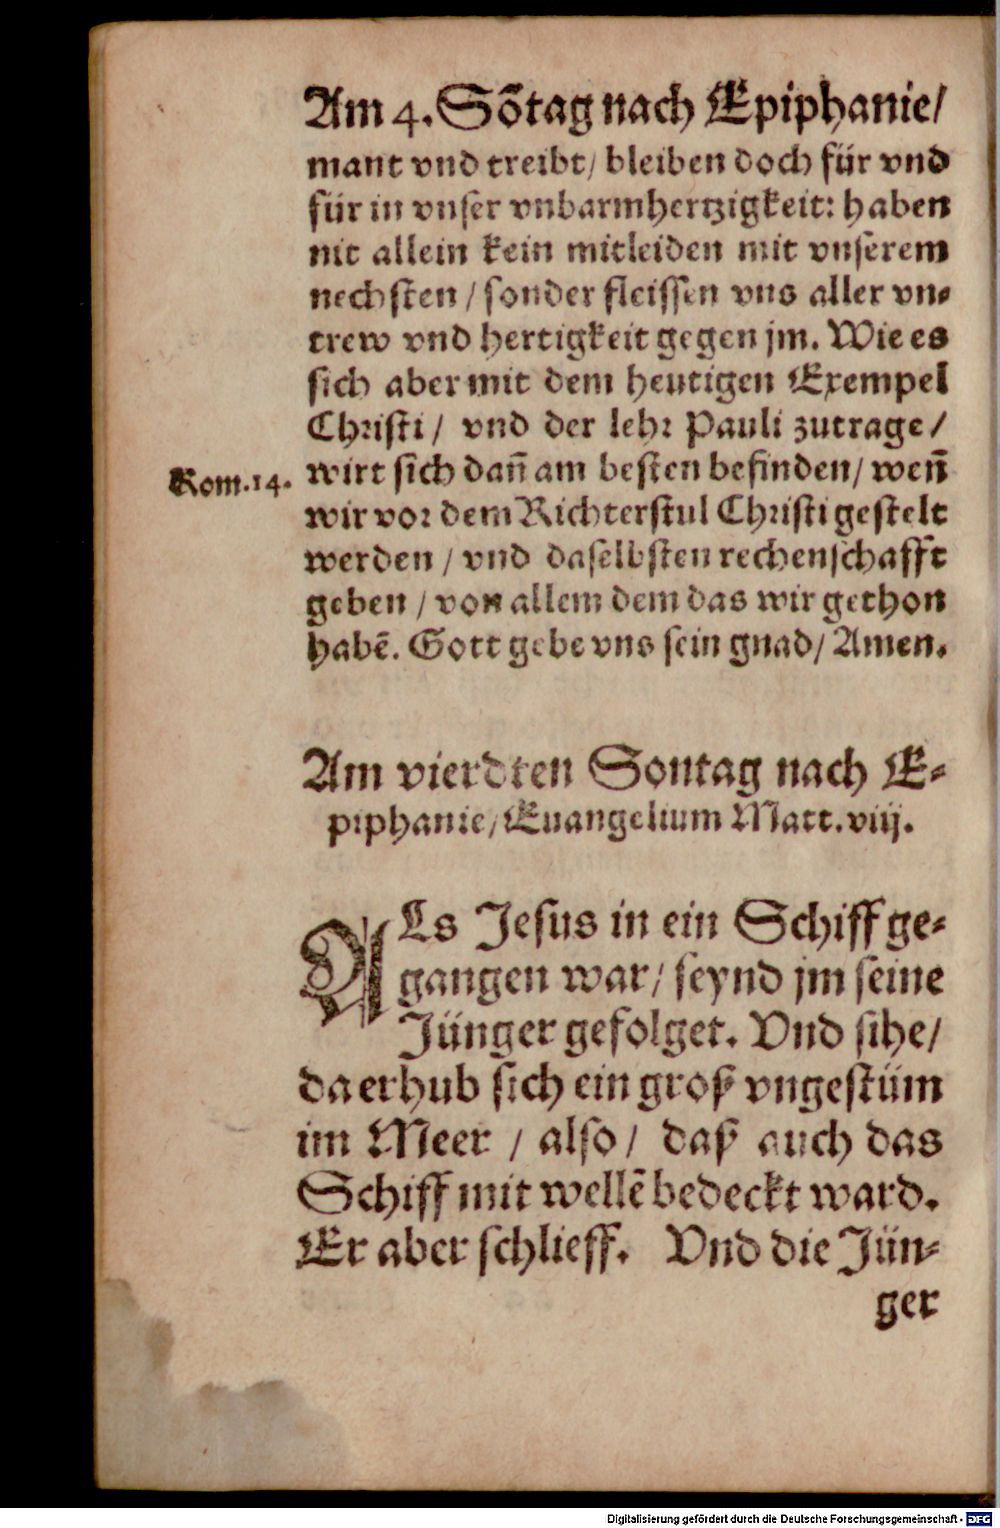 Am 4. Sõtag nach Epiphanie/
mant vnd treibt/ bleiben doch für vnd
für in vnser vnbarmhertzigkeit: haben
nit allein kein mitleiden mit vnserem
nechsten / sonder fleissen vns aller vn⸗
trew vnd hertigkeit gegen jm. Wie es
sich aber mit dem heutigen Exempel
Christi / vnd der lehr Pauli zutrage /
Rom. 14. wirt sich dañ am besten befinden / weñ
wir vor dem Richterstul Christi gestelt
werden / vnd daselbsten rechenschafft
geben / von allem dem das wir gethon
habẽ. Gott gebe vns sein gnad / Amen.
Am vierdten Sontag nach E⸗
piphanie / Euangelium Matt. viij.
ALs Jesus in ein Schiff ge⸗
gangen war / seynd jm seine
Jünger gefolget. Vnd sihe /
da erhub sich ein groß vngestüm
im Meer / also / daß auch das
Schiff mit wellẽ bedeckt ward.
Er aber schlieff. Vnd die Jün⸗
ger
Digitalisierung gefördert durch die Deutsche Forschungsgemeinschaft - DFG